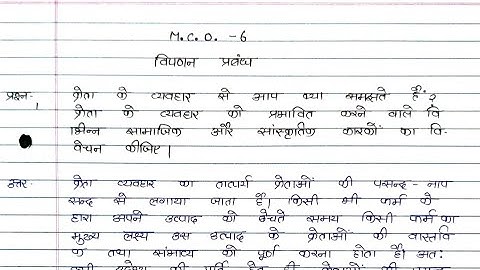 M.C.O. -6
विपणन प्रबंध
प्रश्न- क्रेता के व्यवहार से आप क्या समझते हैं?
1 क्रेता के व्यवहार को प्रभावित करने वाले वि
भिन्न सामाजिक और सांस्कृतिक कारकों का वि-
वेचन कीजिए।
उत्तर- क्रेता व्यवहार का तात्पर्य क्रेताओं की पसन्द-नाप
सन्द से लगाया जाता है। किसी भी फर्म के
द्वारा अपने उत्पाद को बेचते समय किसी फर्म का
मुख्य लक्ष्य उस उत्पाद के क्रेताओं की वास्तवि
क तथा संभाव्य को पूर्ण करना होता है। अत: